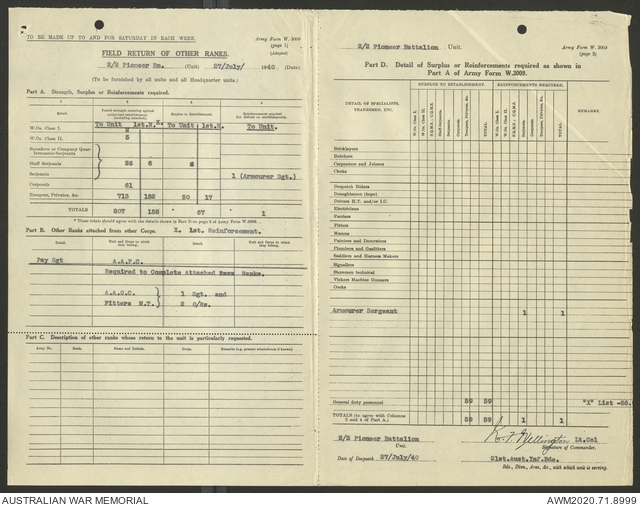 TO BE MADE UP TO AND FOR SATURDAY IN EACH WEEK.
Army Form W. 3009
(page 1)
(Adapted)
FIELD RETURN OF OTHER RANKS.
2/2 Pioneer Bn. (Unit) 27/July/ 1940 (Date).
(To be furnished by all units and all Headquarter units.)
Part A. Strength, Surplus or Reinforcements required.
Detail.
To Unit 1st.R. X. To Unit 1st.R. To Unit.
W.Os. Class I.
W.Os. Class II. 5
Squadron or Company Quarter-master-Serjeants
Staff Serjeants 26 6
Serjeants 1 (Armourer Sgt.)
Corporals 61
Troopers, Privates, &c. 713 152 50 17
TOTALS 807 158 * 67 * 1
* These totals should agree with the details shown in Part D on page 2 of Army Form W.3009.
Part B. Other Ranks attached from other Corps. X. 1st. Reinforcement.
Detail. Unit and Corps to which they belong. Detail. Unit and Corps to which they belong.
Pay Sgt A.A.P.C.
Required to Complete Attached Ranks.
A.A.O.C. 1 Sgt. and
Fitters M.T. 2 O/Rs.
Part C. Description of other ranks whose return to the unit is particularly requested.
Army No. Rank. Name and Initials. Corps. Remarks (e.g. present whereabouts if known).
2/2 Pioneer Battalion Unit.
Army Form W. 3009
(page 2)
Part D. Detail of Surplus or Reinforcements required as shown in
Part A of Army Form W.3009.
DETAIL OF SPECIALISTS, TRADESMEN, ETC.
SURPLUS TO ESTABLISHMENT. REINFORCEMENTS REQUIRED. REMARKS.
W.Os. Class I. W.Os. Class II. S.Q.M.S.; C.Q.M.S. Staff-Serjeants. Serjeants. Corporals. Troopers, Privates, &c. TOTAL
W.Os. Class I. W.Os. Class II. S.Q.M.S.; C.Q.M.S. Staff-Serjeants. Serjeants. Corporals. Troopers, Privates, &c. TOTAL
Bricklayers
Butchers
Carpenters and Joiners
Clerks
Despatch Riders
Draughtsmen (topo)
Drivers H.T. and/or I.C.
Electricians
Farriers
Fitters
Masons
Painters and Decorators
Plumbers and Gasfitters
Saddlers and Harness Makers
Signallers
Storemen technical
Vickers Machine Gunners
Cooks
Armourer Sergeant 1 1
General duty personnel 59 59 "X" List -56.
TOTALS (to agree with Columns 3 and 4 of Part A.) 59 59 1 1
2/2 Pioneer Battalion Lt.Col
Unit. Signature of Commander.
Date of Despatch 27/July/40 21st.Aust.Inf.Bde.
Bde., Divn., Area, &c., with which unit is serving.
AUSTRALIAN WAR MEMORIAL
AWM2020.71.8999